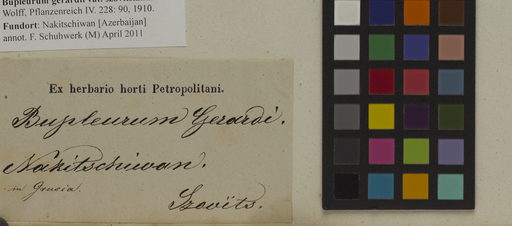 Wolff, Pflanzenreich IV. 228: 90, 1910.
Fundort: Nakitschiwan [Azerbaijan]
annot. F. Schuhwerk (M) April 2011
Ex herbario horti Petropolitani.
Bupleurum Gerardi.
Nakitschiwan.
in Grusia.
Szovits.